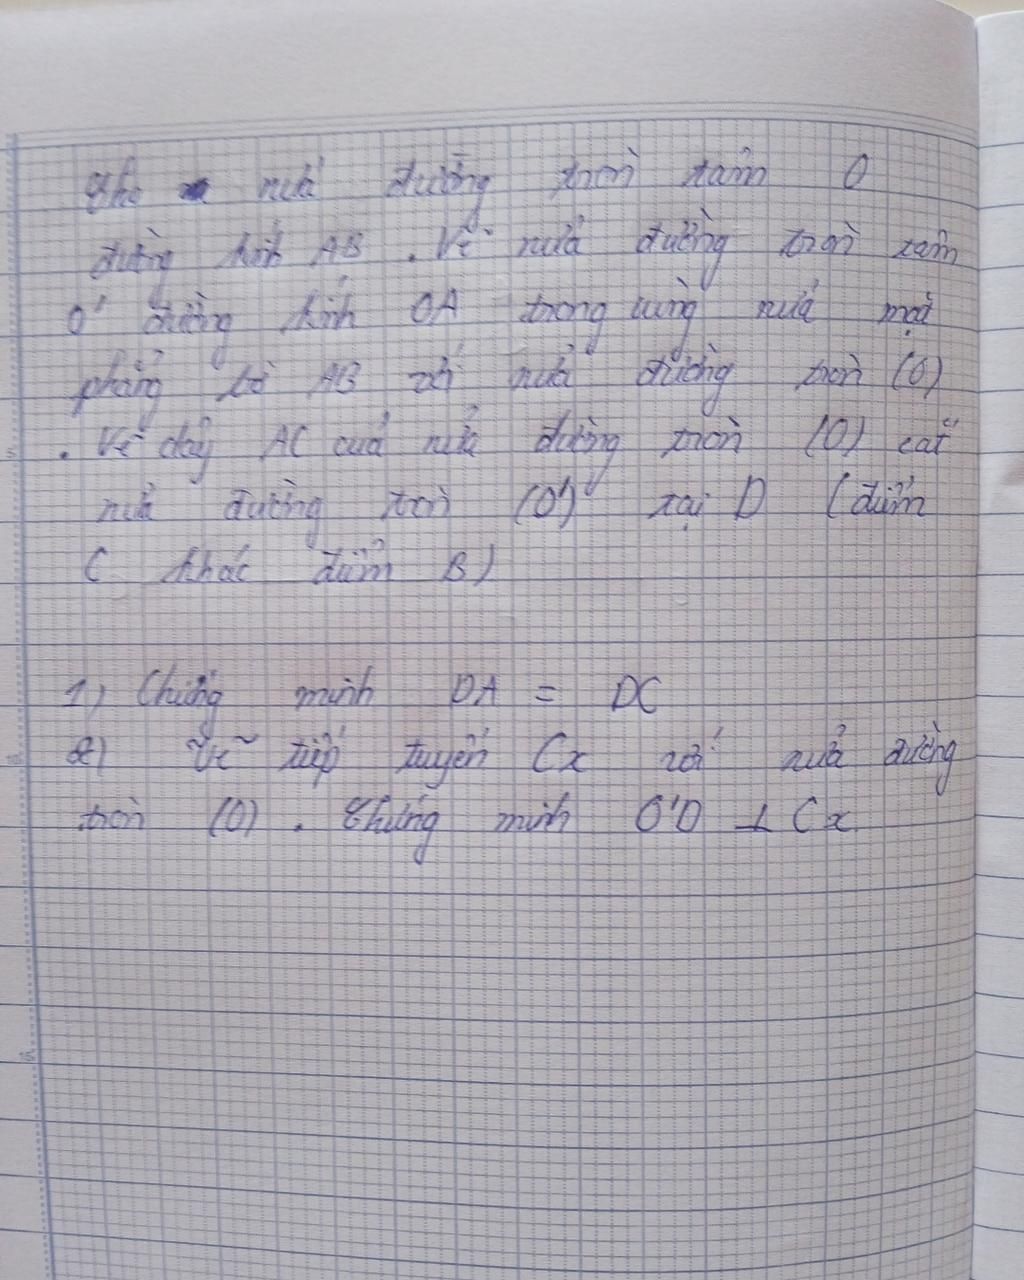 Cho nửa đường tròn tâm O
đường kính AB . Vẽ nửa đường tròn tâm
O' đường kính OA trong cùng nửa mặt
phẳng bờ AB với nửa đường tròn (O)
. Vẽ dây AC của nửa đường tròn (O) cắt
nửa đường tròn (O') tại D (điểm
C khác điểm B)
1) Chứng minh DA = DC
2) Vẽ tiếp tuyến Cx với nửa đường
tròn (O) . Chứng minh O'D ⊥ Cx